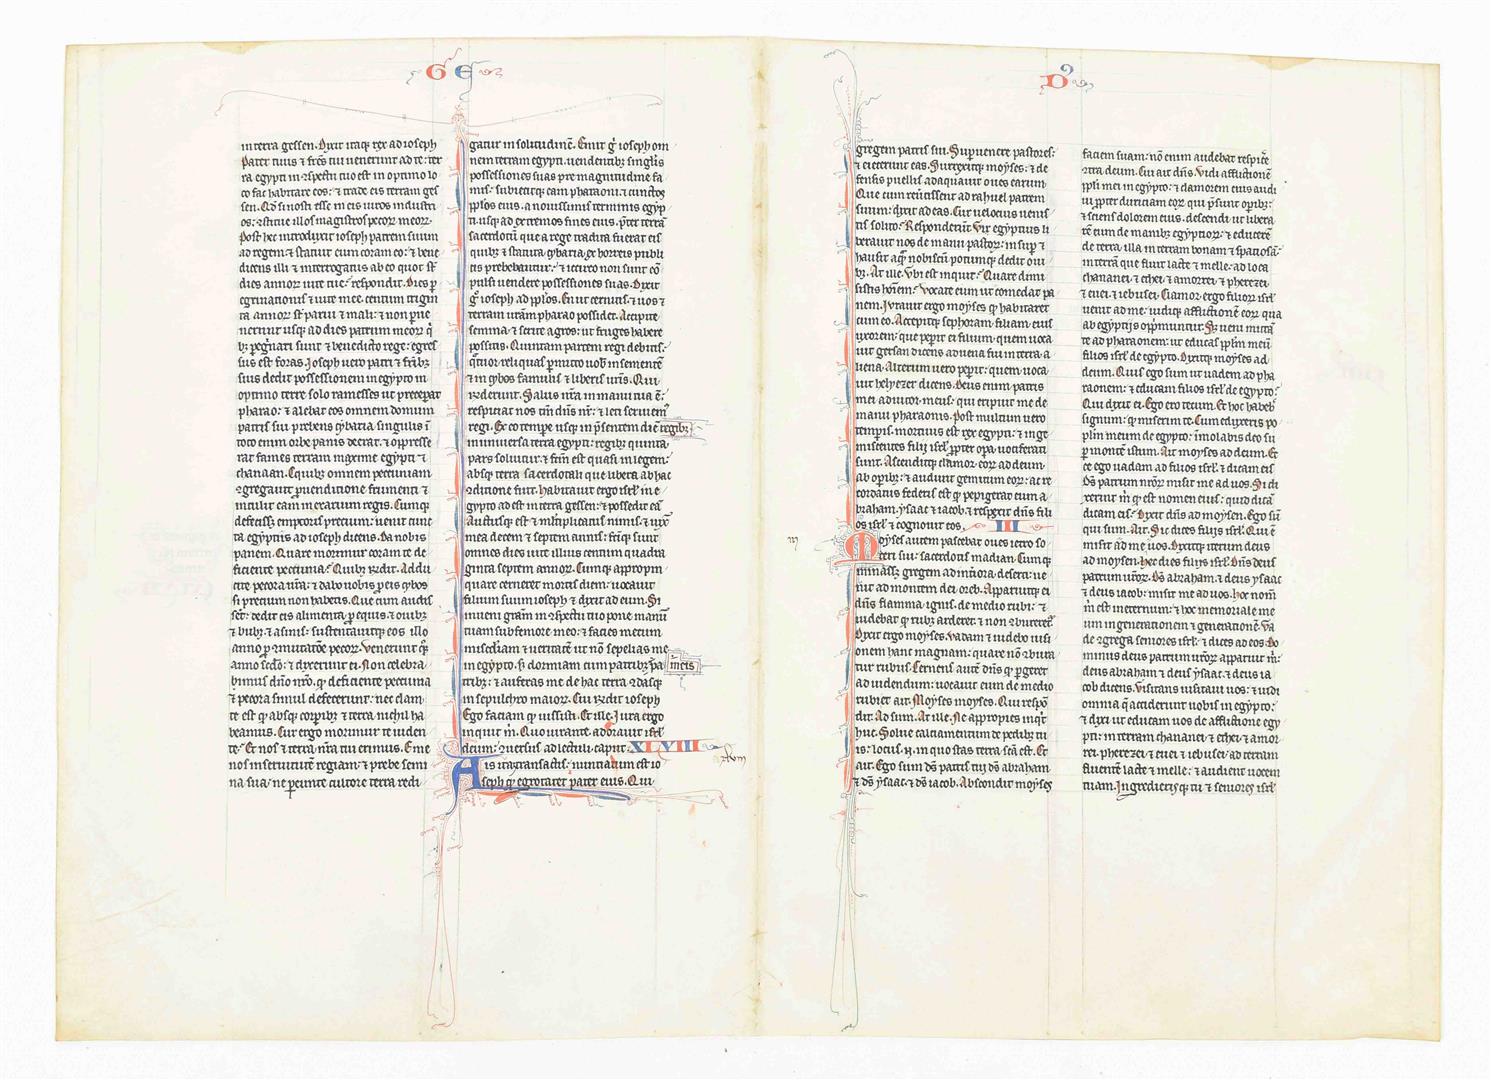 GE
in terra gessen. Dixit itaq; rex ad ioseph
Pater tuus & fr̄es tui uenerunt ad te: ter
ra egypti in ɔspectu tuo est in optimo lo
co fac habitare eos: & trade eis terram ges
sen. Qd si nosti esse in eis uiros industri
os: ɔstitue illos magistros pecoꝝ meoꝝ.
Post hec introduxit ioseph patrem suum
ad regem: & statuit eum coram eo: & bene
dicens illi & interrogatus ab eo quot st̄
dies annoꝝ uite tue: respondit. Dies p̄
egrinationis uite mee. centum trigin
ta annoꝝ st̄ parui & mali: & non pue
nerunt usq; ad dies patrum meoꝝ q̄
b; pegnati sunt & benedicto rege: egres
sus est foras. Ioseph uero patri & fr̄ib;
suis dedit possessionem in egypto in
optimo terre solo ramesses ut preceꝑat
pharao: & alebat eos omnem domum
patris sui prebens cybaria singulis. ī
toto enim orbe panis deerat: & oppresse
rat fames terram maxime egypti &
chanaan. E quib; omnem pecuniam
ɔgregauit p uenditione frumenti &
intulit eam in erarium regis. Cumq;
defecisset emporis precium: uenit cunc
ta egyptus ad ioseph dicens. Da nobis
panem. Quare morimur coram te de
ficiente pecunia? Quib; r̄dit. Addu
cite pecora ur̄a: & dabo uobis p eis cybos
si precium non habetis. Que cum addux
iss̄et: dedit eis alimenta p equis & ouib;
& bub; & asinis: sustentauitq; eos illo
anno p ɔmutatōe pecoꝝ. Uenerunt q̄;
anno sc̄do: & dixerunt ei. Non celebra
bimus dn̄o nr̄o. qd deficiente pecunia
& pecora simul defecerunt: nec clam
te est qd absq; corpib; & terra nichil ha
beamus. Cur ergo morimur te uiden
te: Et nos & terra nr̄a tui erimus. Eme
nos in seruitutem regiam: & prebe semi
na sua: ne pereunte cultore terra redi
gatur in solitudinē. Emit g̊ ioseph om
nem terram egypti. uendentib; singlis
possessiones suas pre magnitudine fa
mis. subiecitq; eam pharaoni. & cunctos
pplos eius. a nouissimis terminis egyp
ti. usq; ad extremos fines eius. p̄ter terrā
sacerdotū que a rege tradita fuerat eis
quib; & statuta cybaria ex horreis publi
cis prebebantur: & iccirco non sunt cō
pulsi uendere possessiones suas. Dixit
g̊ ioseph ad pplos. En ut cernitis. & uos &
terram uram pharao possidet. Accipite
semina. & serite agros: ut fruges habere
possitis. Quintam partem regi debitis:
q̄tuor reliquas pmitto uob̄ in sementē
& in cybos famulis & liberis ur̄is. Qui
rn̄derunt. Salus nr̄a in manu tua ē:
respiciat nos tm̄ dn̄s nr̄: & leti seruiem'
regi. Ex eo tempe usq; in p̄sentem diē regib;
in uniuersa terra egypti: regib; quinta
pars soluitur: & fc̄m est quasi in legem:
absq; terra sacerdotali que libera ab hac
ɔditione fuit. Habitauit ergo isrl̄ in e
gypto id est in terra gessen: & possedit eā
Auctusq; est & m̄ltiplicatus nimis. & uix̄
in ea decem & septem annis: fc̄iq; sunt
omnes dies uite illius centum quadra
ginta septem annoꝝ. Cumq; appropin
quare cerneret mortis diem: uocauit
filium suum ioseph & dixit ad eum. Si
inueni gr̄am in ɔspectu tuo pone manū
tuam sub femore meo: & facies mecum
misc̄diam & ueritatē ut nō sepelias me
in egypto. s; dormiam cum patrib; p̄a meis
trib;: & auferas me de hac terra ɔdasq;
in sepulchro maioꝝ. Cui rn̄dit ioseph
Ego faciam qd iussisti. Et ille. Iura ergo
inquit m̄. Quo iurante. adorauit isrl̄
deum: ɔuersus ad lectuli caput. XLVIII
xlviii
His ita trānsactis: nunciatum est io
seph. qd egrotaret pater eius. Qui
D9
gregem patris sui. Supuenere pastores:
& eiecerunt eas. Surrexitq; moyses: & de
fensis puellis adaquauit oues earum
Que cum reūtissent ad rahuel patrem
suum: dixit ad eas. Cur uelocius uenis
tis solito? Responderunt. Vir egyptius li
berauit nos de manu pastoꝝ: insup &
hausit aq̄m nobiscū potumq; dedit oui
b;. At ille. Vbi est inquit? Quare dimi
sistis hōīem? Vocate eum ut comedat pa
nem. Iurauit ergo moyses qd habitaret
cum eo. Accepitq; sephoram filiam eius
uxorem: que pepit ei filium. quem uoca
uit gersan dicens. aduena fui in terra a
liena. Alterum uero pepit: quem uoca
uit helyezer dicens. Deus enim patris
mei adiutor meus: qui eripuit me de
manu pharaonis. Post multum uero
tempis. mortuus est rex egypti: & inge
miscentes filii isrl̄. ppter opa. uociferati
sunt. Ascenditq; clamor eoꝝ ad deum.
ab opib;: & audiuit gemitum eoꝝ: ac re
cordatus federis est qd pepigerat cum a
braham. ysaac & iacob. & respexit dn̄s fili
os isrl̄ & cognouit eos. III
iii
Moyses autem pascebat oues ietro so
ceri sui. sacerdotis madian. Cumq;
minass; gregem ad intīora deserti: ue
nit ad montem dei oreb. Apparuitq; ei
dn̄s flamma ignis. de medio rubi: &
uidebat qd rub; arderet: & non ɔbureret̄.
Dixit ergo moyses. Vadam & uidebo uisi
onem hanc magnam: quare nō ɔbura
tur rubus. Cernens autē dn̄s qd pgeret
ad uidendum: uocauit eum de medio
rubi & ait. Moyses moyses. Qui respō
dit. Ad sum. At ille. Ne appropies inq̄t
huc. Solue calciamentum de pedib; tu
is: locus. n̄. in quo stas terra sc̄a est. Et
ait. Ego sum ds̄ patris tui ds̄ abraham
& ds̄ ysaac. & ds̄ iacob. Abscondit moyses
faciem suam: nō enim audebat respice
re ɔtra deum. Cui ait dn̄s. Vidi afflictionē
ppli mei in egypto: & clamorem eius audi
ui. ppter duriciam eoꝝ qui p̄sunt opib;:
& sciens dolorem eius. descendi ut libera
rē eum de manib; egyptioꝝ: & educerē
de terra illa in terram bonam & spaciosā:
in terrā que fluit lacte & melle: ad loca
chananei. & ethei. & amorrei. & pherezei.
& euei. & iebusei. Clamor ergo filioꝝ isrl̄
uenit ad me: uidiq; afflictionē eoꝝ qua
ab egyptiis opp̄muntur. S; ueni mittā
te ad pharaonem: ut educas pplm meū
filios isrl̄ de egypto. Dixitq; moyses ad
deum. Quis ego sum ut uadam ad pha
raonem: & educam filios isrl̄ de egypto?
Qui dixit ei. Ego ero tecum. Et hoc habeb̄
signum: qd miserim te. Cum eduxeris po
plm meum de egypto: īmolabis deo su
p montē istum. Ait moyses ad deum. Ec
ce ego uadam ad filios isrl̄: & dicam eis
Ds̄ patrum ur̄oꝝ misit me ad uos. Si di
xerint m̄ qd est nomen eius: quid dicā
dicam eis? Dixit dn̄s ad moysen. Ego sū
qui sum. Ait. Sic dices filiis isrl̄. Qui ē
misit ad me uos. Dixitq; iterum deus
ad moysen. Hec dices filiis isrl̄. Dn̄s deus
patrum ur̄oꝝ. Ds̄ abraham. & deus ysaac
& deus iacob: misit me ad uos. Hoc nom̄
m̄ est in eternum: & hoc memoriale me
um in generationem & generationē. Va
de ɔgrega seniores isrl̄. & dices ad eos. Do
minus deus patrum ur̄oꝝ apparuit m̄.
deus abraham & deus ysaac. & deus ia
cob dicens. Visitans uisitaui uos: & uidi
omnia q̄ acciderunt uobis in egypto:
& dixi ut educam uos de afflictione egy
pti: in terram chananei & ethei & amor
rei. pherezei. & euei & iebusei. ad terram
fluentē lacte & melle: & audient uocem
tuam. Ingredierisq; tu & seniores isrl̄